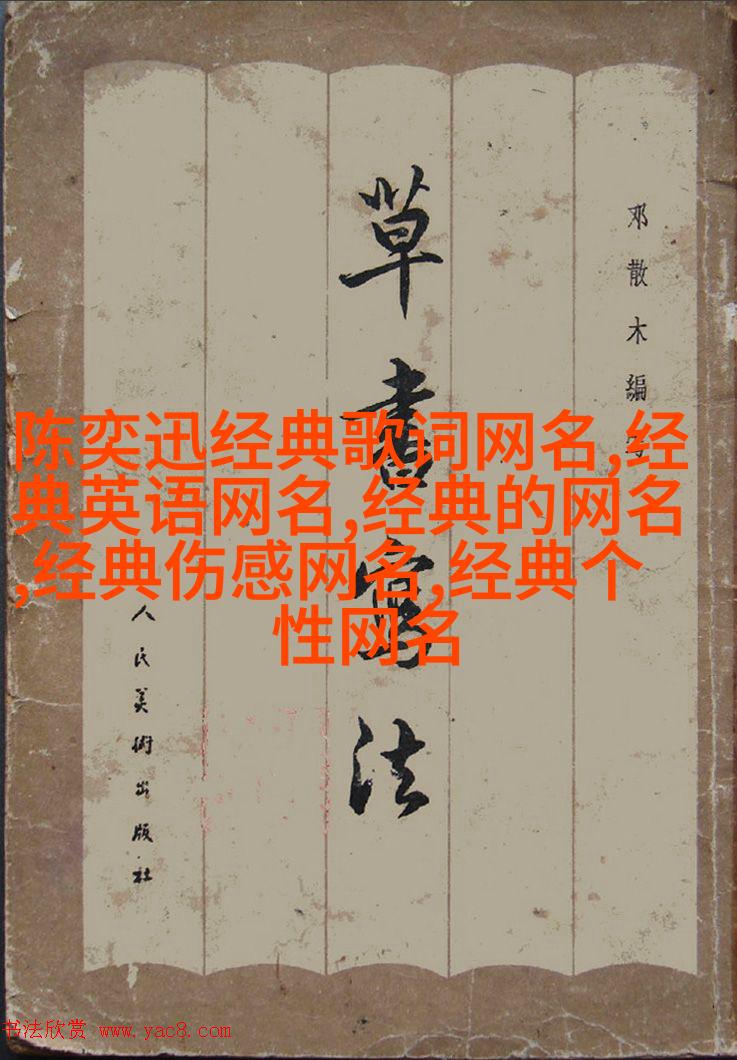 邓散木編写
草書寫法
人民美術出版社
陈奕迅经典歌词网名,经
典英语网名,经典的网名
,经典伤感网名,经典个
性网名
书法欣赏 www.yac8.com